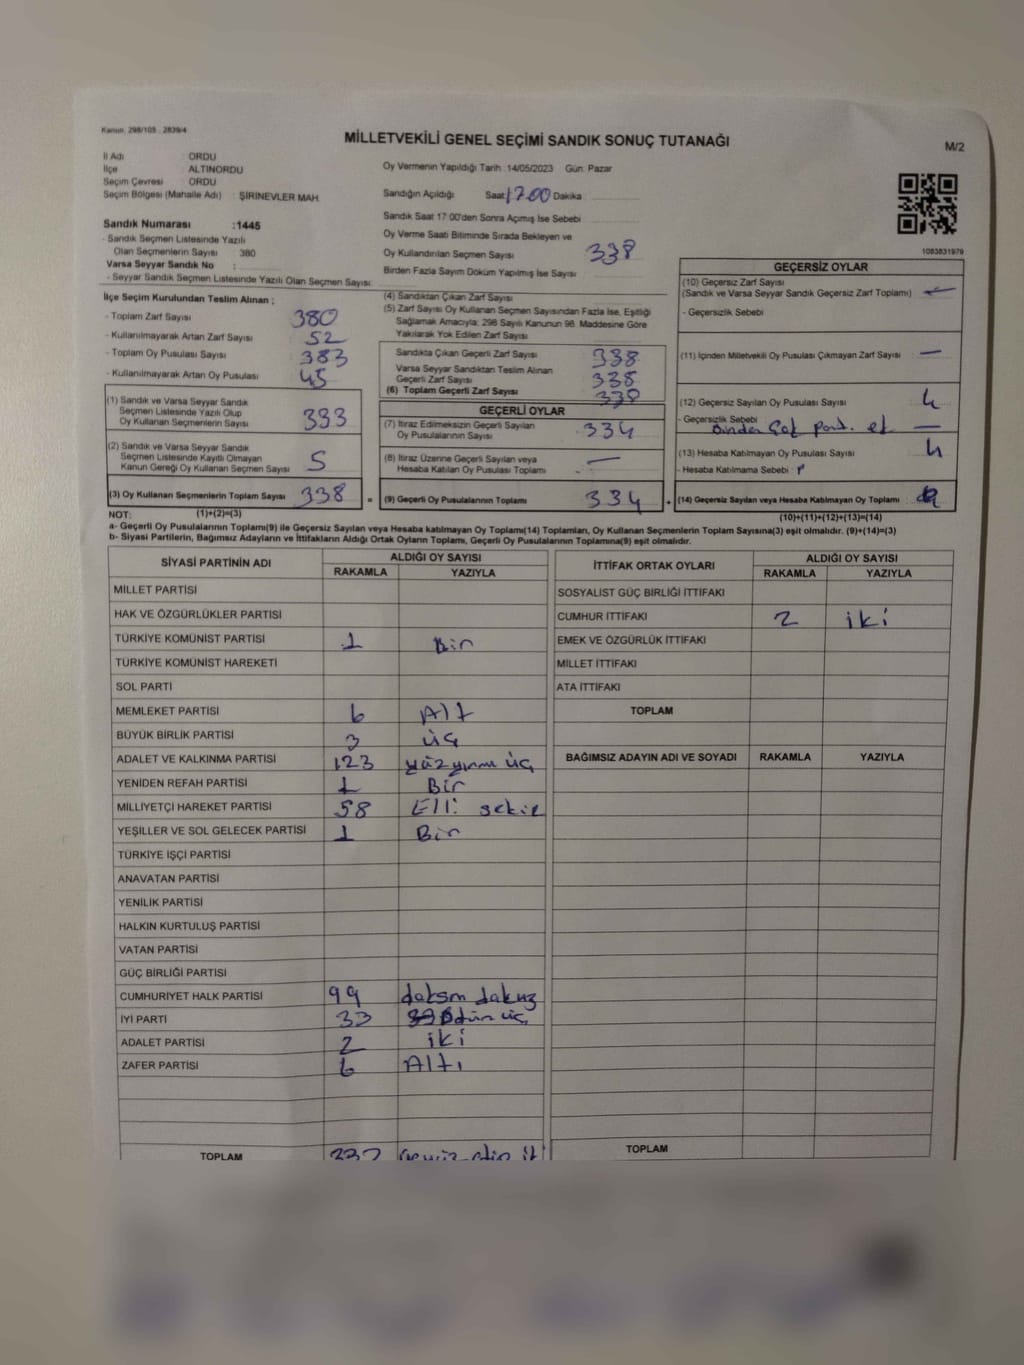 Kanun, 298/105 , 2839/4
MİLLETVEKİLİ GENEL SEÇİMİ SANDIK SONUÇ TUTANAĞI
M/2
İl Adı : ORDU
İlçe : ALTINORDU
Seçim Çevresi : ORDU
Seçim Bölgesi (Mahalle Adı) : ŞİRİNEVLER MAH.
Oy Vermenin Yapıldığı Tarih : 14/05/2023 Gün: Pazar
Sandığın Açıldığı Saat 17.00 Dakika
Sandık Saat 17:00'den Sonra Açımış İse Sebebi
Oy Verme Saati Bitiminde Sırada Bekleyen ve
Oy Kullandırılan Seçmen Sayısı 338
Birden Fazla Sayım Döküm Yapılmış İse Sayısı
1083831979
Sandık Numarası :1445
- Sandık Seçmen Listesinde Yazılı
Olan Seçmenlerin Sayısı : 380
Varsa Seyyar Sandık No :
- Seyyar Sandık Seçmen Listesinde Yazılı Olan Seçmen Sayısı:
İlçe Seçim Kurulundan Teslim Alınan ;
- Toplam Zarf Sayısı 380
- Kullanılmayarak Artan Zarf Sayısı 52
- Toplam Oy Pusulası Sayısı 383
- Kullanılmayarak Artan Oy Pusulası 45
(1) Sandık ve Varsa Seyyar Sandık
Seçmen Listesinde Yazılı Olup
Oy Kullanan Seçmenlerin Sayısı 333
(2) Sandık ve Varsa Seyyar Sandık
Seçmen Listesinde Kayıtlı Olmayan
Kanun Gereği Oy Kullanan Seçmen Sayısı 5
(3) Oy Kullanan Seçmenlerin Toplam Sayısı 338
=
(4) Sandıktan Çıkan Zarf Sayısı
(5) Zarf Sayısı Oy Kullanan Seçmen Sayısından Fazla İse, Eşitliği
Sağlamak Amacıyla; 298 Sayılı Kanunun 98. Maddesine Göre
Yakılarak Yok Edilen Zarf Sayısı
Sandıkta Çıkan Geçerli Zarf Sayısı 338
Varsa Seyyar Sandıktan Teslim Alınan
Geçerli Zarf Sayısı 338
(6) Toplam Geçerli Zarf Sayısı 338
GEÇERLİ OYLAR
(7) İtiraz Edilmeksizin Geçerli Sayılan
Oy Pusulalarının Sayısı 334
(8) İtiraz Üzerine Geçerli Sayılan veya
Hesaba Katılan Oy Pusulası Toplamı —
(9) Geçerli Oy Pusulalarının Toplamı 334
+
GEÇERSİZ OYLAR
(10) Geçersiz Zarf Sayısı
(Sandık ve Varsa Seyyar Sandık Geçersiz Zarf Toplamı) —
- Geçersizlik Sebebi
(11) İçinden Milletvekili Oy Pusulası Çıkmayan Zarf Sayısı —
(12) Geçersiz Sayılan Oy Pusulası Sayısı 4
- Geçersizlik Sebebi Birden Çok —
(13) Hesaba Katılmayan Oy Pusulası Sayısı 4
- Hesaba Katılmama Sebebi :
(14) Geçersiz Sayılan veya Hesaba Katılmayan Oy Toplamı :
NOT: (1)+(2)=(3)
(10)+(11)+(12)+(13)=(14)
a- Geçerli Oy Pusulalarının Toplamı(9) ile Geçersiz Sayılan veya Hesaba katılmayan Oy Toplamı(14) Toplamları, Oy Kullanan Seçmenlerin Toplam Sayısına(3) eşit olmalıdır. (9)+(14)=(3)
b- Siyasi Partilerin, Bağımsız Adayların ve İttifakların Aldığı Ortak Oyların Toplamı, Geçerli Oy Pusulalarının Toplamına(9) eşit olmalıdır.
SİYASİ PARTİNİN ADI
ALDIĞI OY SAYISI
RAKAMLA YAZIYLA
MİLLET PARTİSİ
HAK VE ÖZGÜRLÜKLER PARTİSİ
TÜRKİYE KOMÜNİST PARTİSİ 1 Bir
TÜRKİYE KOMÜNİST HAREKETİ
SOL PARTİ
MEMLEKET PARTİSİ 6 Altı
BÜYÜK BİRLİK PARTİSİ 3 üç
ADALET VE KALKINMA PARTİSİ 123 yüzyirmi üç
YENİDEN REFAH PARTİSİ 1 Bir
MİLLİYETÇİ HAREKET PARTİSİ 58 Elli sekiz
YEŞİLLER VE SOL GELECEK PARTİSİ 1 Bir
TÜRKİYE İŞÇİ PARTİSİ
ANAVATAN PARTİSİ
YENİLİK PARTİSİ
HALKIN KURTULUŞ PARTİSİ
VATAN PARTİSİ
GÜÇ BİRLİĞİ PARTİSİ
CUMHURİYET HALK PARTİSİ 99 doksan dokuz
İYİ PARTİ 33 üç
ADALET PARTİSİ 2 iki
ZAFER PARTİSİ 6 Altı
TOPLAM
İTTİFAK ORTAK OYLARI
ALDIĞI OY SAYISI
RAKAMLA YAZIYLA
SOSYALİST GÜÇ BİRLİĞİ İTTİFAKI
CUMHUR İTTİFAKI 2 iki
EMEK VE ÖZGÜRLÜK İTTİFAKI
MİLLET İTTİFAKI
ATA İTTİFAKI
TOPLAM
BAĞIMSIZ ADAYIN ADI VE SOYADI RAKAMLA YAZIYLA
TOPLAM